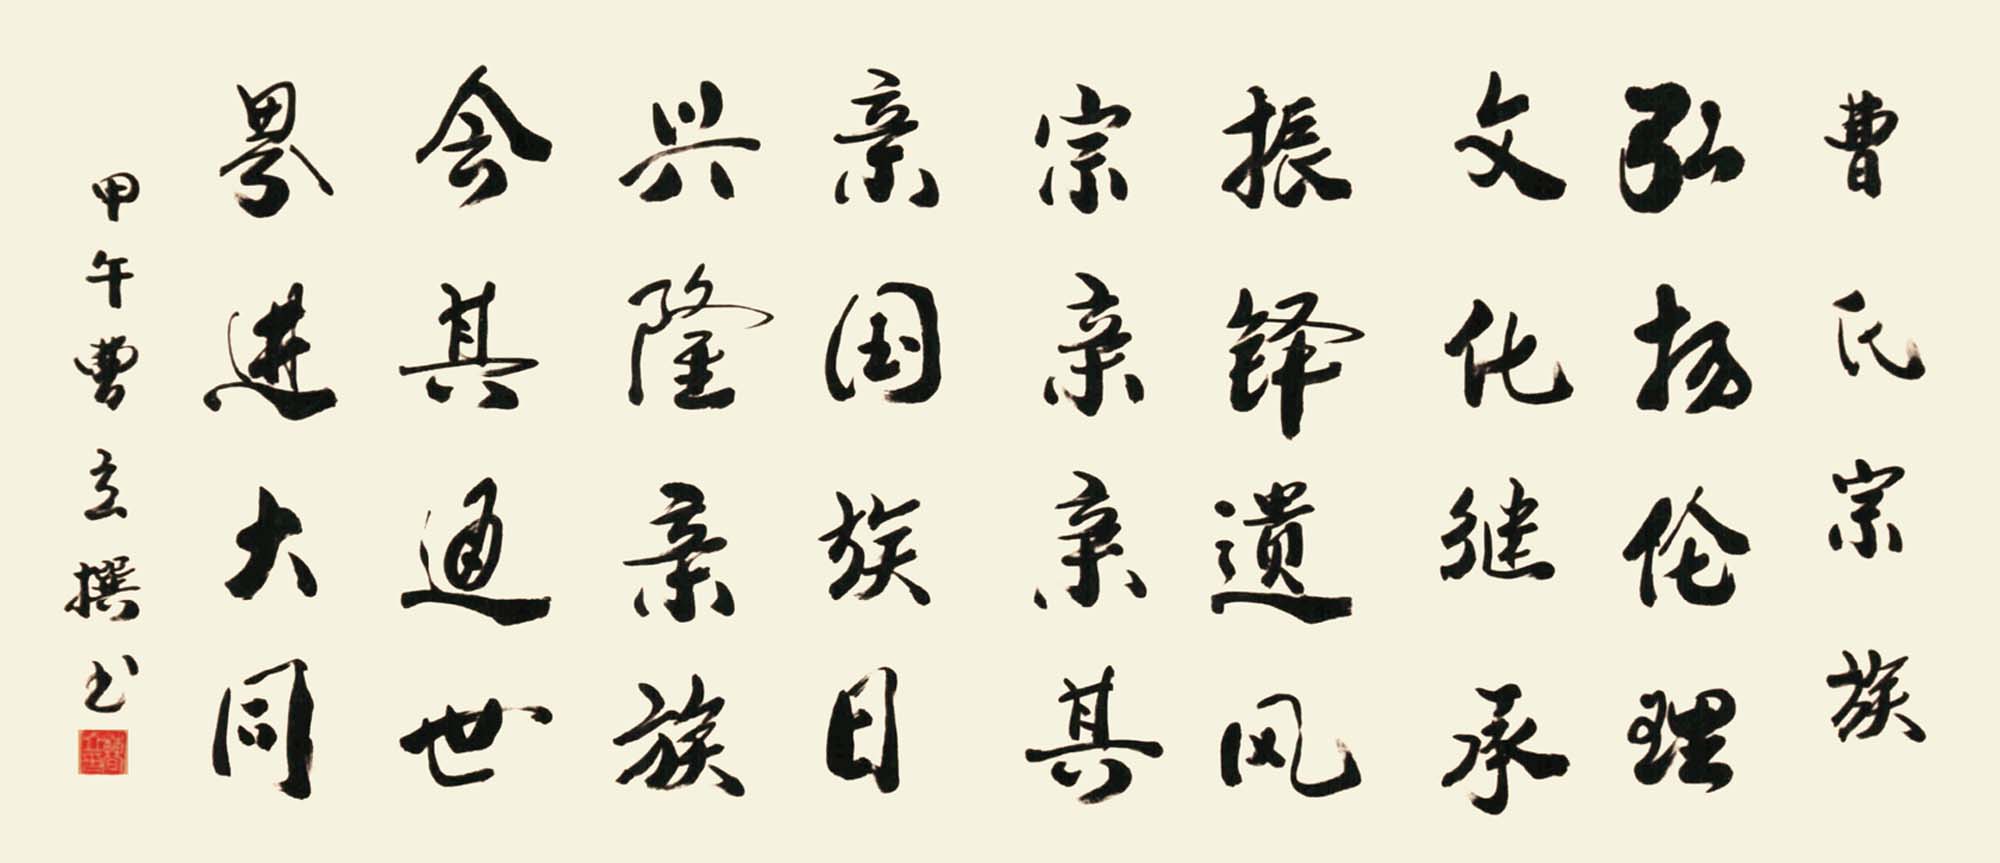 曹氏宗族
弘扬伦理
文化继承
振铎遗风
宗亲亲其
亲国族日
兴隆亲族
会其通世
界进大同
甲午曹立撰书